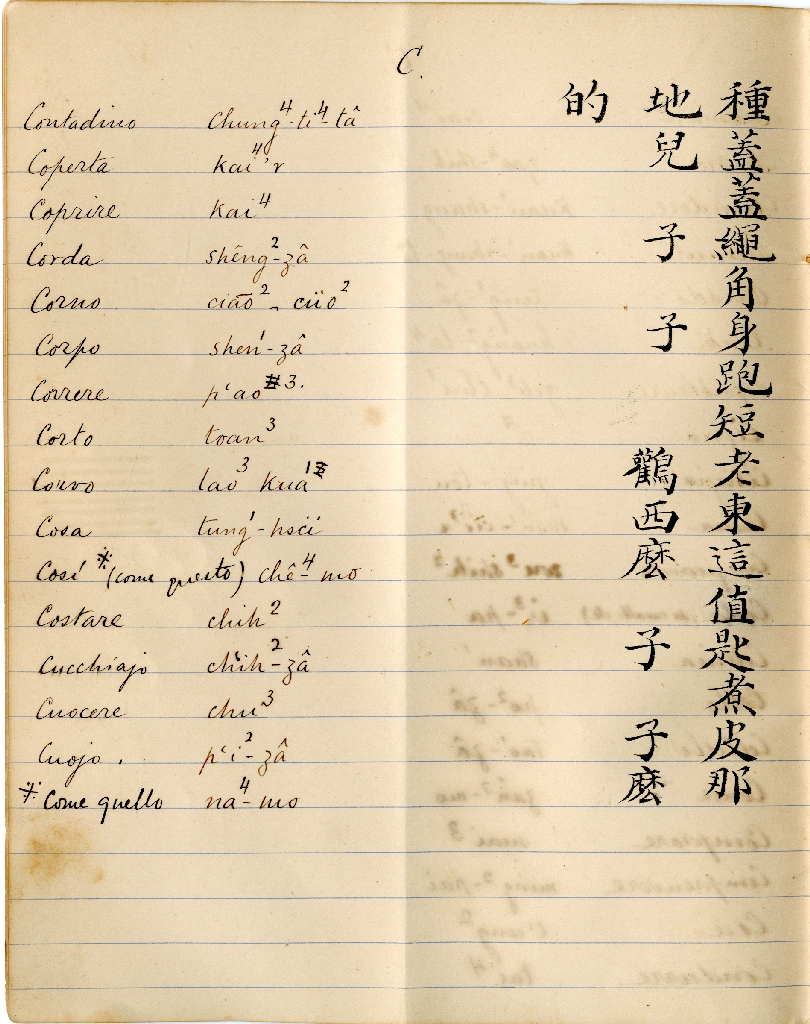 C.
Contadino chung⁴-ti⁴-tâ 種地的
Coperta kai⁴'r 蓋兒
Coprire kai⁴ 蓋
Corda shêng²-zâ 繩子
Corno ciāo², cüo² 角
Corpo shen¹-zâ 身子
Correre p'ao³. 跑
Corto toan³ 短
Corvo lao³ kua¹ 老鸛
Cosa tung¹-hsci 東西
Cosí * (come questo) chê⁴-mo 這麼
Costare chih² 值
Cucchiajo ch'ih²-zâ 匙子
Cuocere chu³ 煮
Cuojo. p'i²-zâ 皮子
* Come quello na⁴-mo 那麼